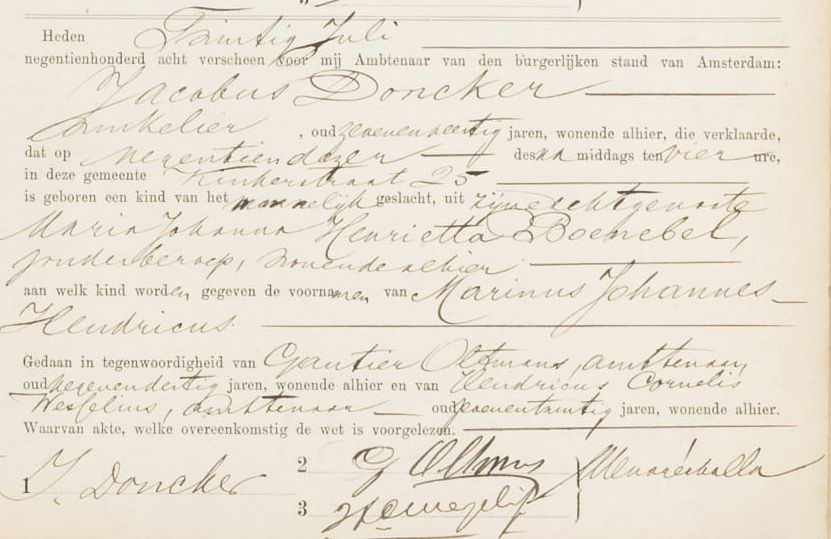 Heden Twintig Juli
negentienhonderd acht verscheen voor mij Ambtenaar van den burgerlijken stand van Amsterdam:
Jacobus Doncker
Winkelier, oud zevenenveertig jaren, wonende alhier, die verklaarde,
dat op negentien dezer des na middags ten vier ure,
in deze gemeente Kinkerstraat 25
is geboren een kind van het mannelijk geslacht, uit zijne echtgenoote
Maria Johanna Henrietta Boenebel,
zonder beroep, wonende alhier
aan welk kind worden gegeven de voornamen van Marinus Johannes
Hendricus.
Gedaan in tegenwoordigheid van Gautier Oltmans, ambtenaar,
oud negenendertig jaren, wonende alhier en van Hendricus Cornelis
Wesselius, ambtenaar oud zevenentwintig jaren, wonende alhier.
Waarvan akte, welke overeenkomstig de wet is voorgelezen.
1 J. Doncker
2 G Oltmans
3